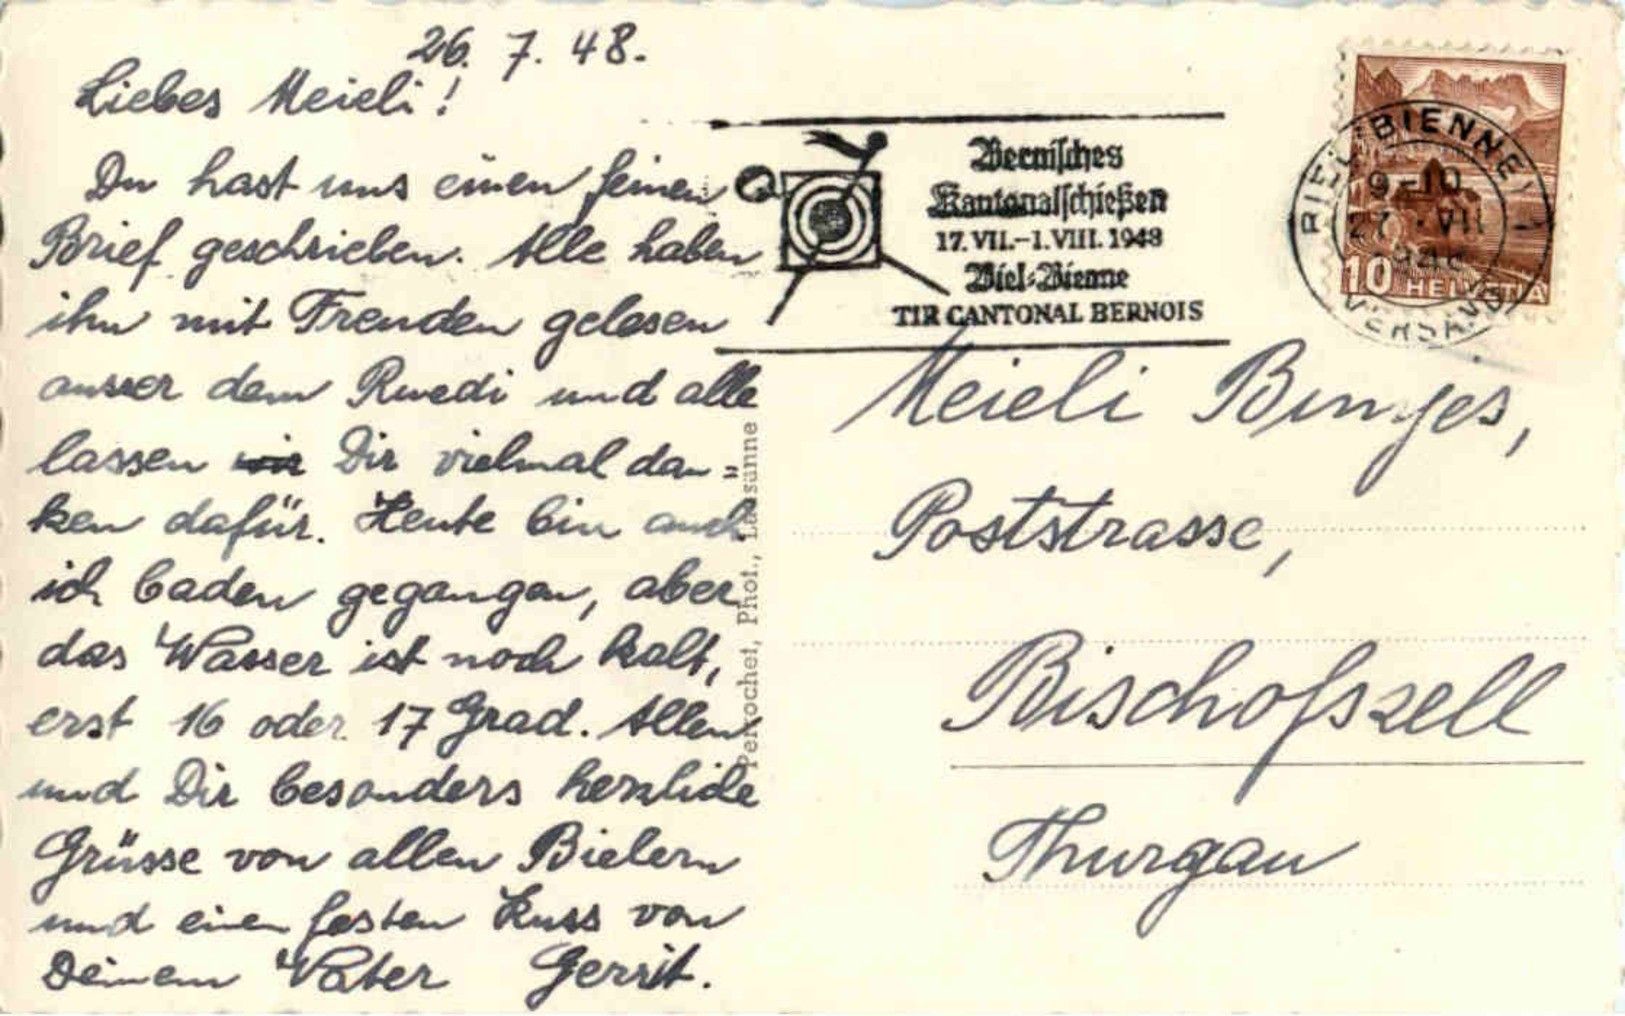 26. 7. 48.
Liebes Meieli!
Du hast uns einen feinen
Brief geschrieben. Alle haben
ihn mit Freuden gelesen
ausser dem Ruedi und alle
lassen wir Dir vielmal dan=
ken dafür. Heute bin auch
ich baden gegangen, aber
das Wasser ist noch kalt,
erst 16 oder 17 Grad. Allen
und Dir besonders herzliche
Grüsse von allen Bielern
und einen festen Kuss von
Deinem Vater Gerrit.
Perrochet, Phot., Lausanne
Bernisches
Kantonalschießen
17. VII.-1. VIII. 1948
Biel-Bienne
TIR CANTONAL BERNOIS
BIEL (BIENNE) 1
9-10
27. VII
1948
VERSAND
10 HELVETIA
Meieli
Poststrasse,
Bischofszell
Thurgau